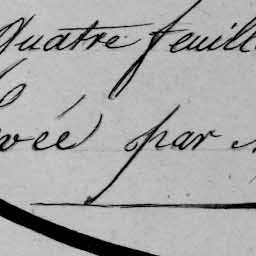 Quatre feuill
vée par